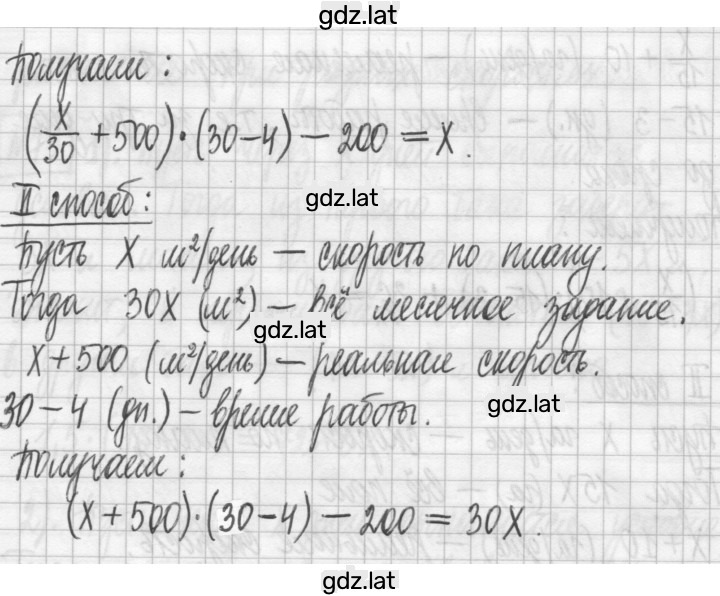 gdz.lat
Получаем:
(x/30 + 500) · (30 - 4) - 200 = x.
II способ:
gdz.lat
Пусть x м²/день — скорость по плану.
Тогда 30x (м²) — всё месячное задание.
gdz.lat
x + 500 (м²/день) — реальная скорость.
30 - 4 (дн.) — время работы.
gdz.lat
Получаем:
(x + 500) · (30 - 4) - 200 = 30x.
gdz.lat